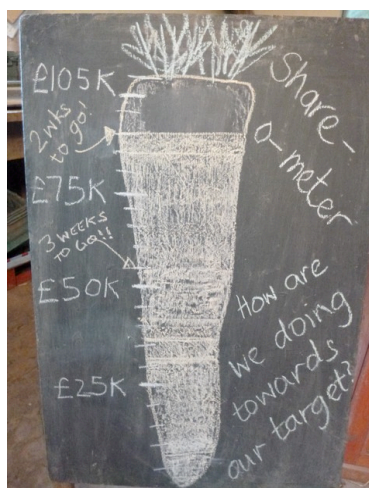 £105K
2 wks
to go!
£75K
3 WEEKS
TO GO!!
£50K
£25K
Share-
o-meter
How are
we doing
towards
our target?